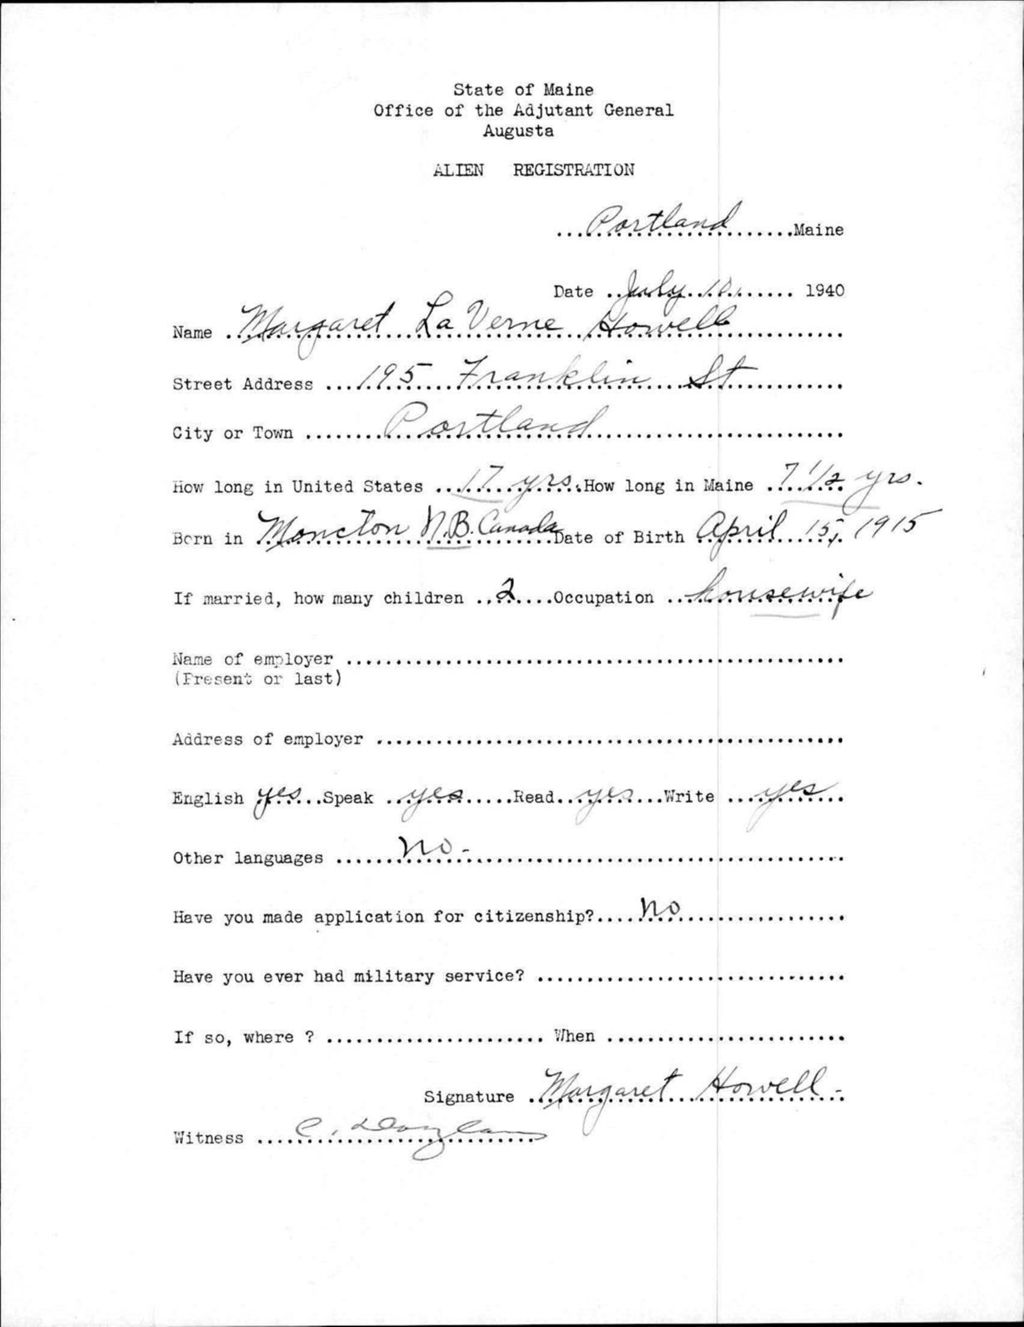 State of Maine
Office of the Adjutant General
Augusta
ALIEN REGISTRATION
...Portland.......Maine
Date ..July 10,...... 1940
Name .Margaret La Verne Howell..............
Street Address ...195 Franklin St.............
City or Town ........Portland..............................
How long in United States ..17 yrs.How long in Maine .7 1/2 yrs.
Born in Moncton N.B. Canada Date of Birth April 15, 1915
If married, how many children ..2....Occupation ..housewife
Name of employer ............................................................
(Present or last)
Address of employer .........................................................
English yes...Speak ..yes......Read..yes...Write ...yes....
Other languages ......No-.............................................
Have you made application for citizenship?....No....................
Have you ever had military service? .....................................
If so, where ? .......................... When .............................
Signature .Margaret Howell-
Witness ....C. Douglas